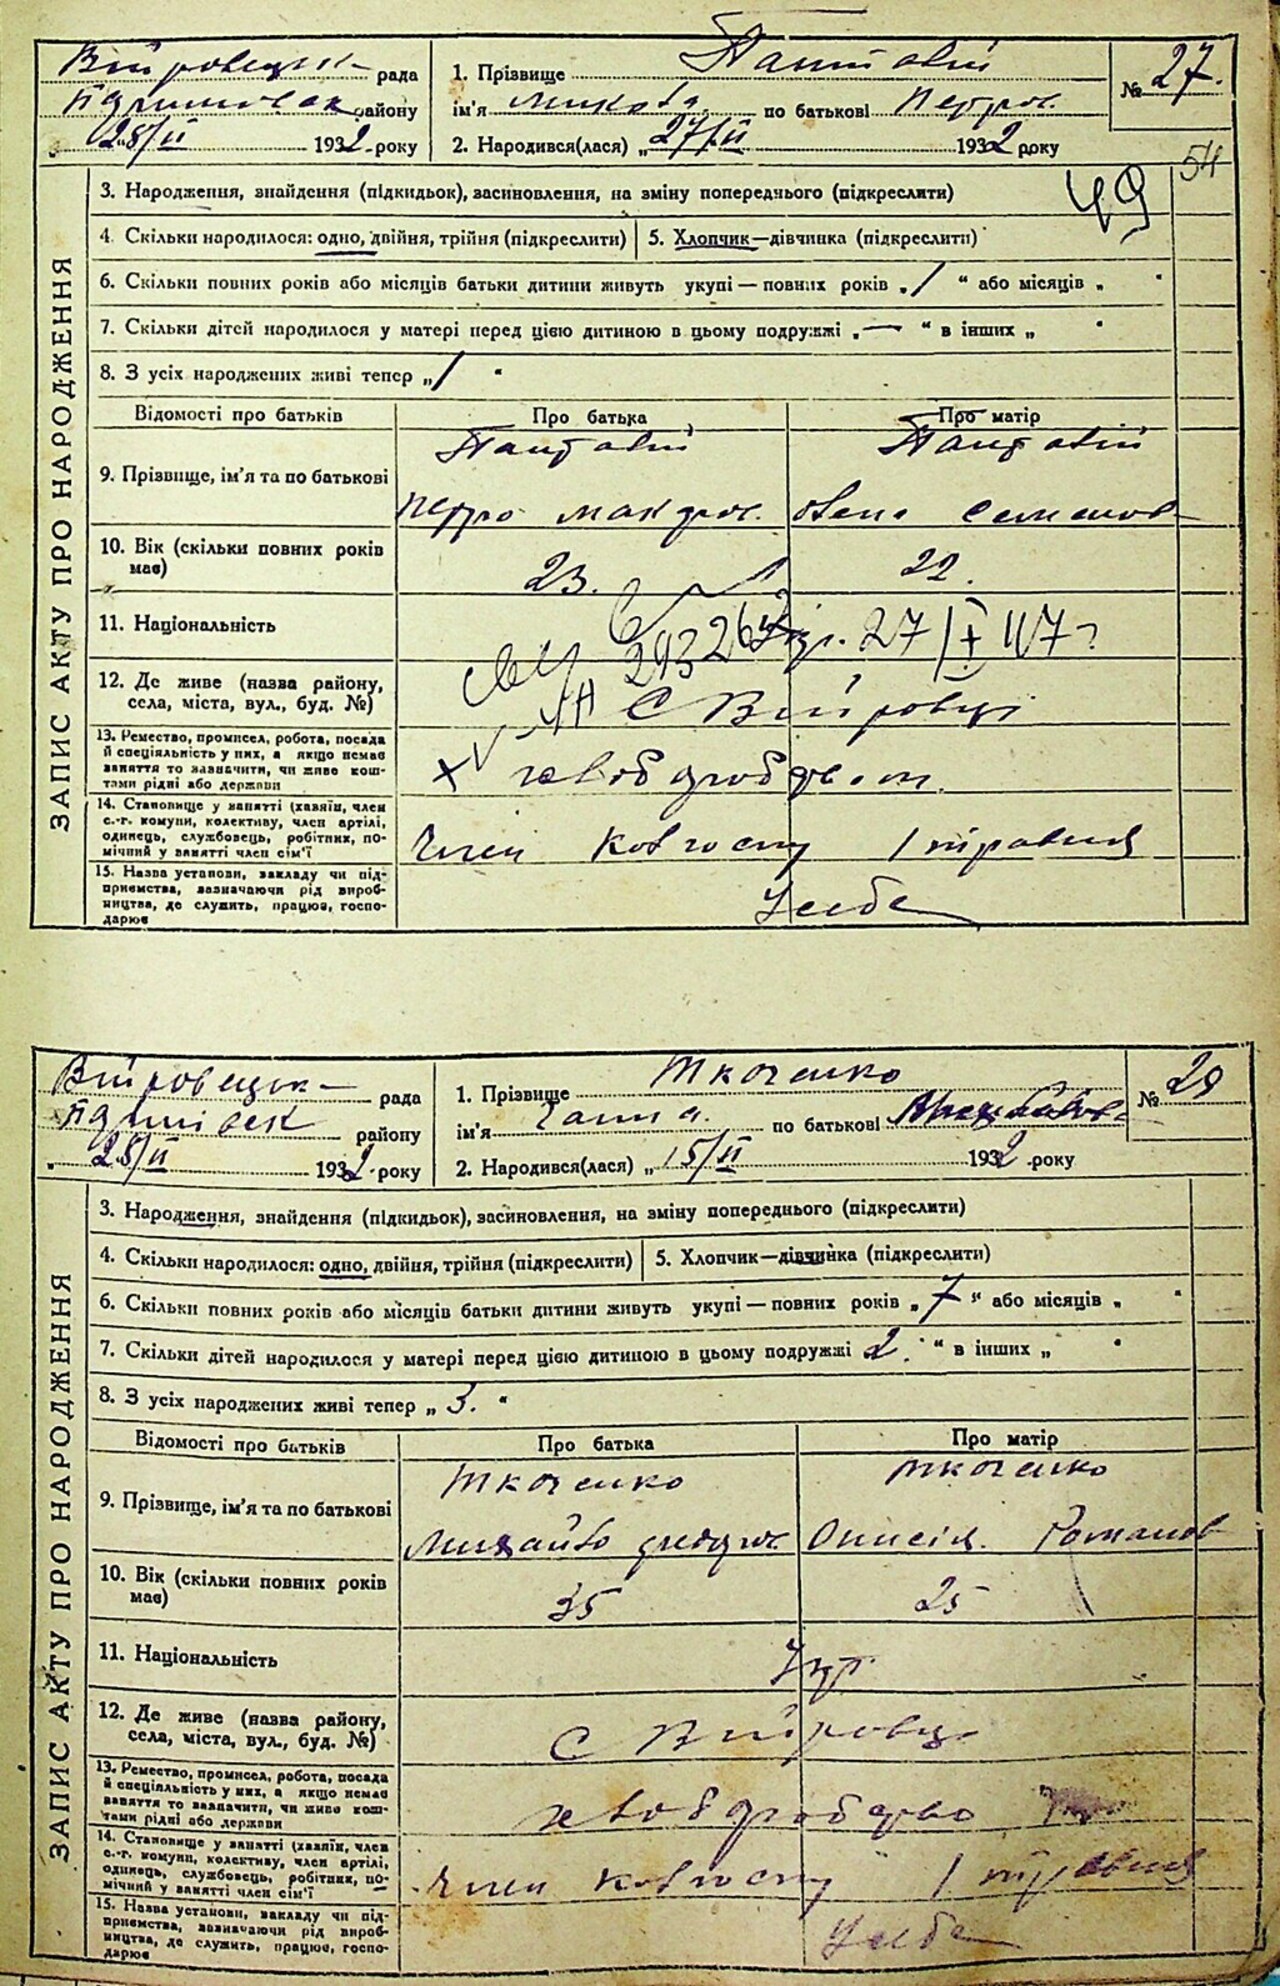 рада
району
28/II 1932 року
1. Прізвище Пантовій
ім'я Микола по батькові Петров.
2. Народився(лася) „27/II 1932 року
№ 27.
54
49
ЗАПИС АКТУ ПРО НАРОДЖЕННЯ
3. Народження, знайдення (підкидьок), засиновлення, на зміну попереднього (підкреслити)
4. Скільки народилося: одно, двійня, трійня (підкреслити)
5. Хлопчик—дівчинка (підкреслити)
6. Скільки повних років або місяців батьки дитини живуть укупі — повних років „1 “ або місяців „ “
7. Скільки дітей народилося у матері перед цією дитиною в цьому подружжі „— “ в інших „ “
8. З усіх народжених живі тепер „1 “
Відомості про батьків
Про батька
Про матір
9. Прізвище, ім'я та по батькові
Пантовій
Пантовій
Петро
Семенов
10. Вік (скільки повних років має)
23.
22.
11. Національність
12. Де живе (назва району, села, міста, вул., буд. №)
С Війровці
13. Ремество, промисел, робота, посада й спеціяльність у них, а якщо немає заняття то зазначити, чи живе коштами рідні або держави
хлібороб
14. Становище у занятті (хазяїн, член с.-г. комуни, колективу, член артілі, одинець, службовець, робітник, помічний у занятті член сім'ї
Член колгоспу 1 травня
15. Назва установи, закладу чи підприємства, зазначаючи рід виробництва, де служить, працює, господарює
рада
району
28/II 1932 року
1. Прізвище Ткаченко
ім'я Ганна. по батькові
2. Народився(лася) „15/II 1932 року
№ 28
ЗАПИС АКТУ ПРО НАРОДЖЕННЯ
3. Народження, знайдення (підкидьок), засиновлення, на зміну попереднього (підкреслити)
4. Скільки народилося: одно, двійня, трійня (підкреслити)
5. Хлопчик—дівчинка (підкреслити)
6. Скільки повних років або місяців батьки дитини живуть укупі — повних років „7 “ або місяців „ “
7. Скільки дітей народилося у матері перед цією дитиною в цьому подружжі 2. “ в інших „ “
8. З усіх народжених живі тепер „ 3. “
Відомості про батьків
Про батька
Про матір
9. Прізвище, ім'я та по батькові
Ткаченко
Ткаченко
Михайло
Онисія Романов
10. Вік (скільки повних років має)
35
25
11. Національність
Укр.
12. Де живе (назва району, села, міста, вул., буд. №)
С Війровці
13. Ремество, промисел, робота, посада й спеціяльність у них, а якщо немає заняття то зазначити, чи живе коштами рідні або держави
хліборобство
14. Становище у занятті (хазяїн, член с.-г. комуни, колективу, член артілі, одинець, службовець, робітник, помічний у занятті член сім'ї
Член колгоспу 1 травня
15. Назва установи, закладу чи підприємства, зазначаючи рід виробництва, де служить, працює, господарює